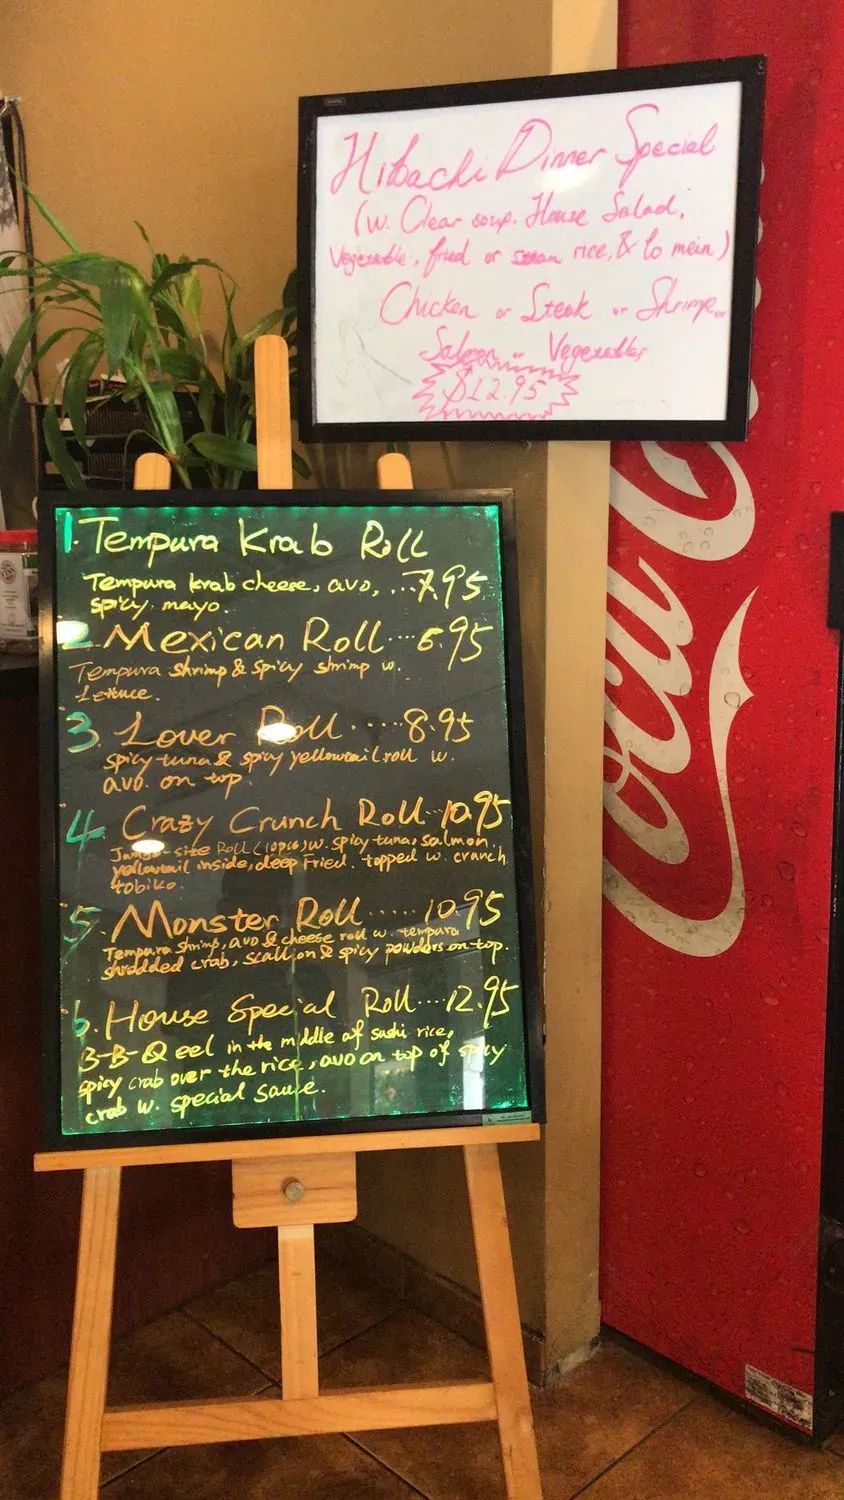 Hibachi Dinner Special
(w. Clear soup, House Salad,
Vegetable, fried or steam rice, & Lo mein)
Chicken or Steak or Shrimp or
Salmon or Vegetables
$12.95
1. Tempura Krab Roll
Tempura krab cheese, avo, ...7.95
spicy mayo.
2 Mexican Roll ... 6.95
Tempura shrimp & spicy shrimp w.
Lettuce.
3. Lover Roll ..... 8.95
spicy tuna & spicy yellowtail roll w.
avo. on top.
4. Crazy Crunch Roll 10.95
Jumbo-size Roll (10pcs) w. spicy tuna, salmon
yellowtail inside, deep fried. topped w. crunch
tobiko.
5. Monster Roll ..... 10.95
Tempura shrimp, avo & cheese roll w. tempura
shredded crab, scallion & spicy powders on top.
6. House Special Roll .... 12.95
B-B-Q eel in the middle of sushi rice,
spicy crab over the rice, avo on top of spicy
crab w. special sauce.
Coca Co